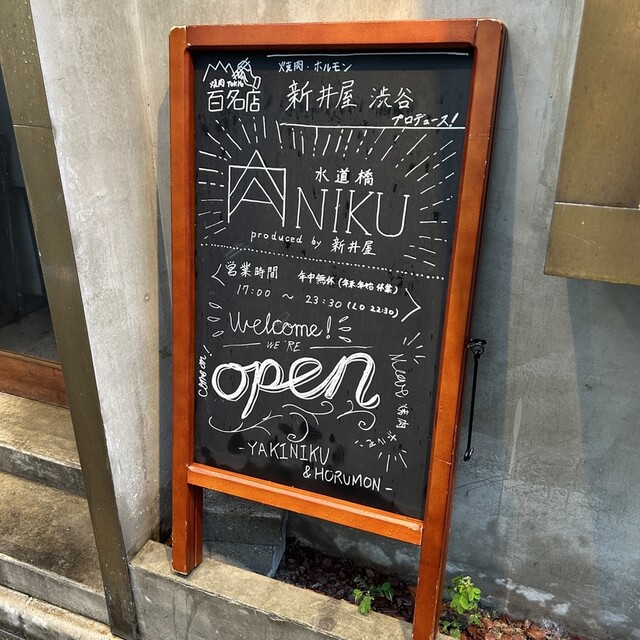 焼肉 TOKYO
百名店
焼肉・ホルモン
新井屋 渋谷
プロデュース!
水道橋
ANIKU
produced by 新井屋
営業時間 年中無休(年末年始休業)
17:00 ～ 23:30 (LO 22:30)
Welcome!
WE'RE
Come on!
open
焼肉
-YAKINIKU
&HORUMON-